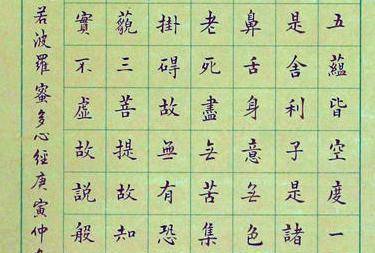 五蘊皆空度一
是舍利子是諸
鼻舌身意无色
老死盡无苦集
掛碍故無有恐
藐三菩提故知
實不虛故說般
若波羅蜜多心經庚寅仲